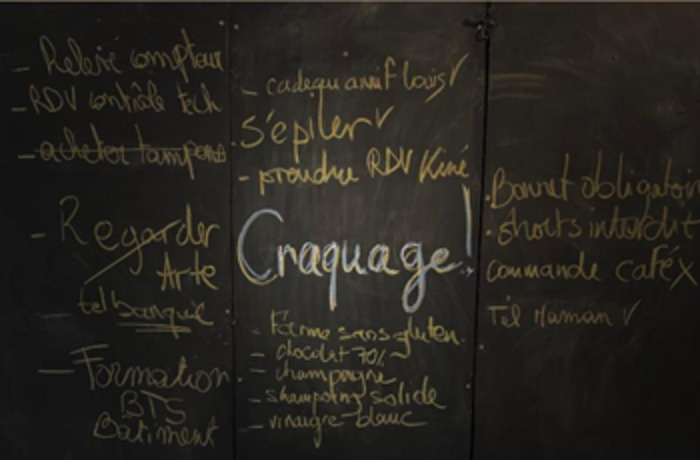 - Relevé compteur
- RDV contrôle tech
- acheter tampons
- Regarder
Arte
- tel banque
- Formation
BTS
Batiment
- cadeau annif Louis V
S'épiler V
- prendre RDV Kiné
Craquage!
- Farine sans gluten
- chocolat 70%
- champagne
- shampoing solide
- vinaigre blanc
. Bonnet obligatoire
. shorts interdit
Commande café X
Tél Maman V